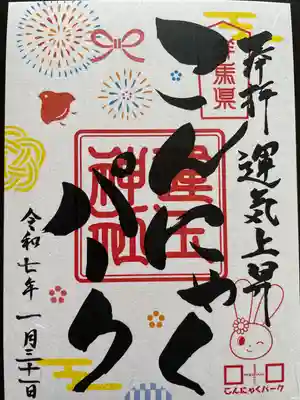 奉拝 運気上昇
群馬県
こんにゃく
パーク
令和七年 一月三十一日
こんにゃくパーク